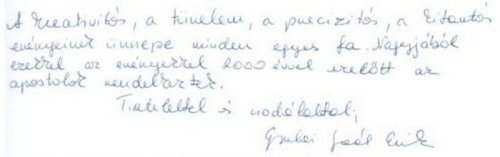 A kreativitás, a türelem, a precizitás, a kitartás
erényeinek ünnepe minden egyes fa. Nagyjából
ezekkel az erényekkel 2000 évvel ezelőtt az
apostolok rendelkeztek.
Tisztelettel és csodálattal,
Gaál Erik